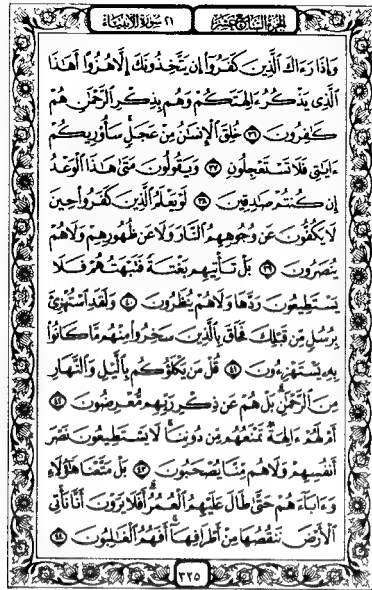 الجزء السابع عشر ٢١ سورة الأنبياء
وَإِذَا رَءَاكَ ٱلَّذِينَ كَفَرُوٓا۟ إِن يَتَّخِذُونَكَ إِلَّا هُزُوًا أَهَـٰذَا
ٱلَّذِى يَذْكُرُ ءَالِهَتَكُمْ وَهُم بِذِكْرِ ٱلرَّحْمَـٰنِ هُمْ
كَـٰفِرُونَ ٣٦ خُلِقَ ٱلْإِنسَـٰنُ مِنْ عَجَلٍ سَأُو۟رِيكُمْ
ءَايَـٰتِى فَلَا تَسْتَعْجِلُونِ ٣٧ وَيَقُولُونَ مَتَىٰ هَـٰذَا ٱلْوَعْدُ
إِن كُنتُمْ صَـٰدِقِينَ ٣٨ لَوْ يَعْلَمُ ٱلَّذِينَ كَفَرُوا۟ حِينَ
لَا يَكُفُّونَ عَن وُجُوهِهِمُ ٱلنَّارَ وَلَا عَن ظُهُورِهِمْ وَلَا هُمْ
يُنصَرُونَ ٣٩ بَلْ تَأْتِيهِم بَغْتَةً فَتَبْهَتُهُمْ فَلَا
يَسْتَطِيعُونَ رَدَّهَا وَلَا هُمْ يُنظَرُونَ ٤٠ وَلَقَدِ ٱسْتُهْزِئَ
بِرُسُلٍ مِّن قَبْلِكَ فَحَاقَ بِٱلَّذِينَ سَخِرُوا۟ مِنْهُم مَّا كَانُوا۟
بِهِۦ يَسْتَهْزِءُونَ ٤١ قُلْ مَن يَكْلَؤُكُم بِٱلَّيْلِ وَٱلنَّهَارِ
مِنَ ٱلرَّحْمَـٰنِ بَلْ هُمْ عَن ذِكْرِ رَبِّهِم مُّعْرِضُونَ ٤٢
أَمْ لَهُمْ ءَالِهَةٌ تَمْنَعُهُم مِّن دُونِنَا لَا يَسْتَطِيعُونَ نَصْرَ
أَنفُسِهِمْ وَلَا هُم مِّنَّا يُصْحَبُونَ ٤٣ بَلْ مَتَّعْنَا هَـٰٓؤُلَآءِ
وَءَابَآءَهُمْ حَتَّىٰ طَالَ عَلَيْهِمُ ٱلْعُمُرُ أَفَلَا يَرَوْنَ أَنَّا نَأْتِى
ٱلْأَرْضَ نَنقُصُهَا مِنْ أَطْرَافِهَآ أَفَهُمُ ٱلْغَـٰلِبُونَ ٤٤
٣٢٥